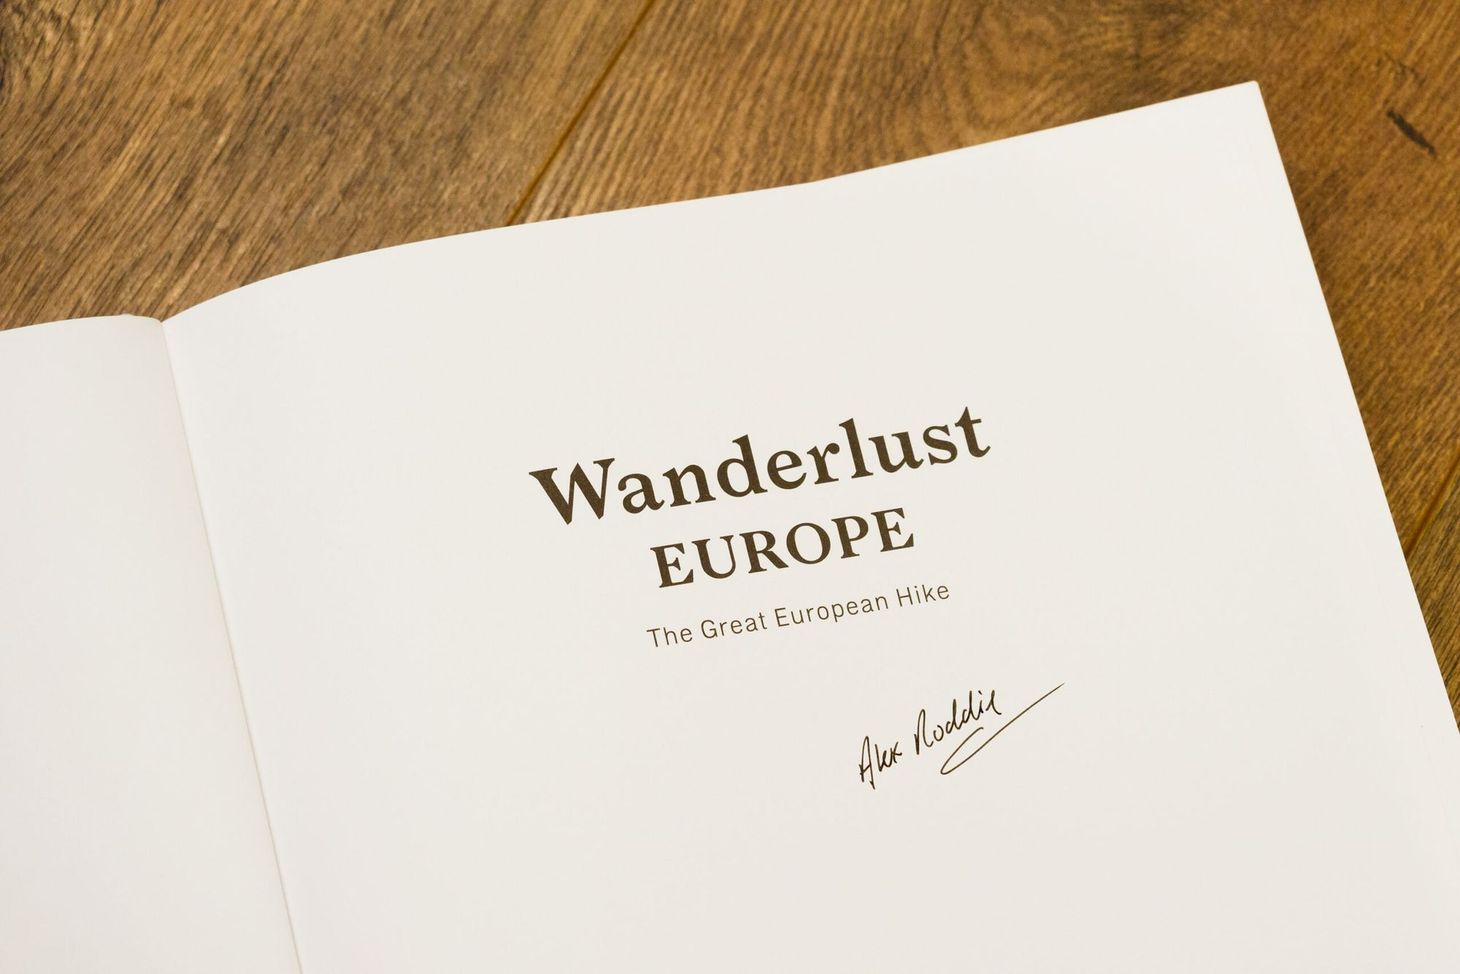 Wanderlust
EUROPE
The Great European Hike
Alex Roddie